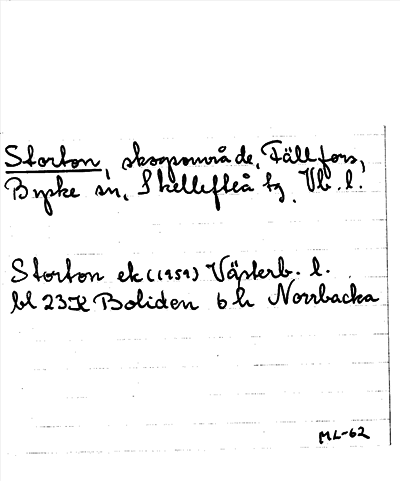 Storton, skogsområde, Fällfors,
Byske sn, Skellefteå tg. Vb. l.
Storton ek (1959) Västerb. l.
bl 23K Boliden 6 h Norrbacka
ML-62